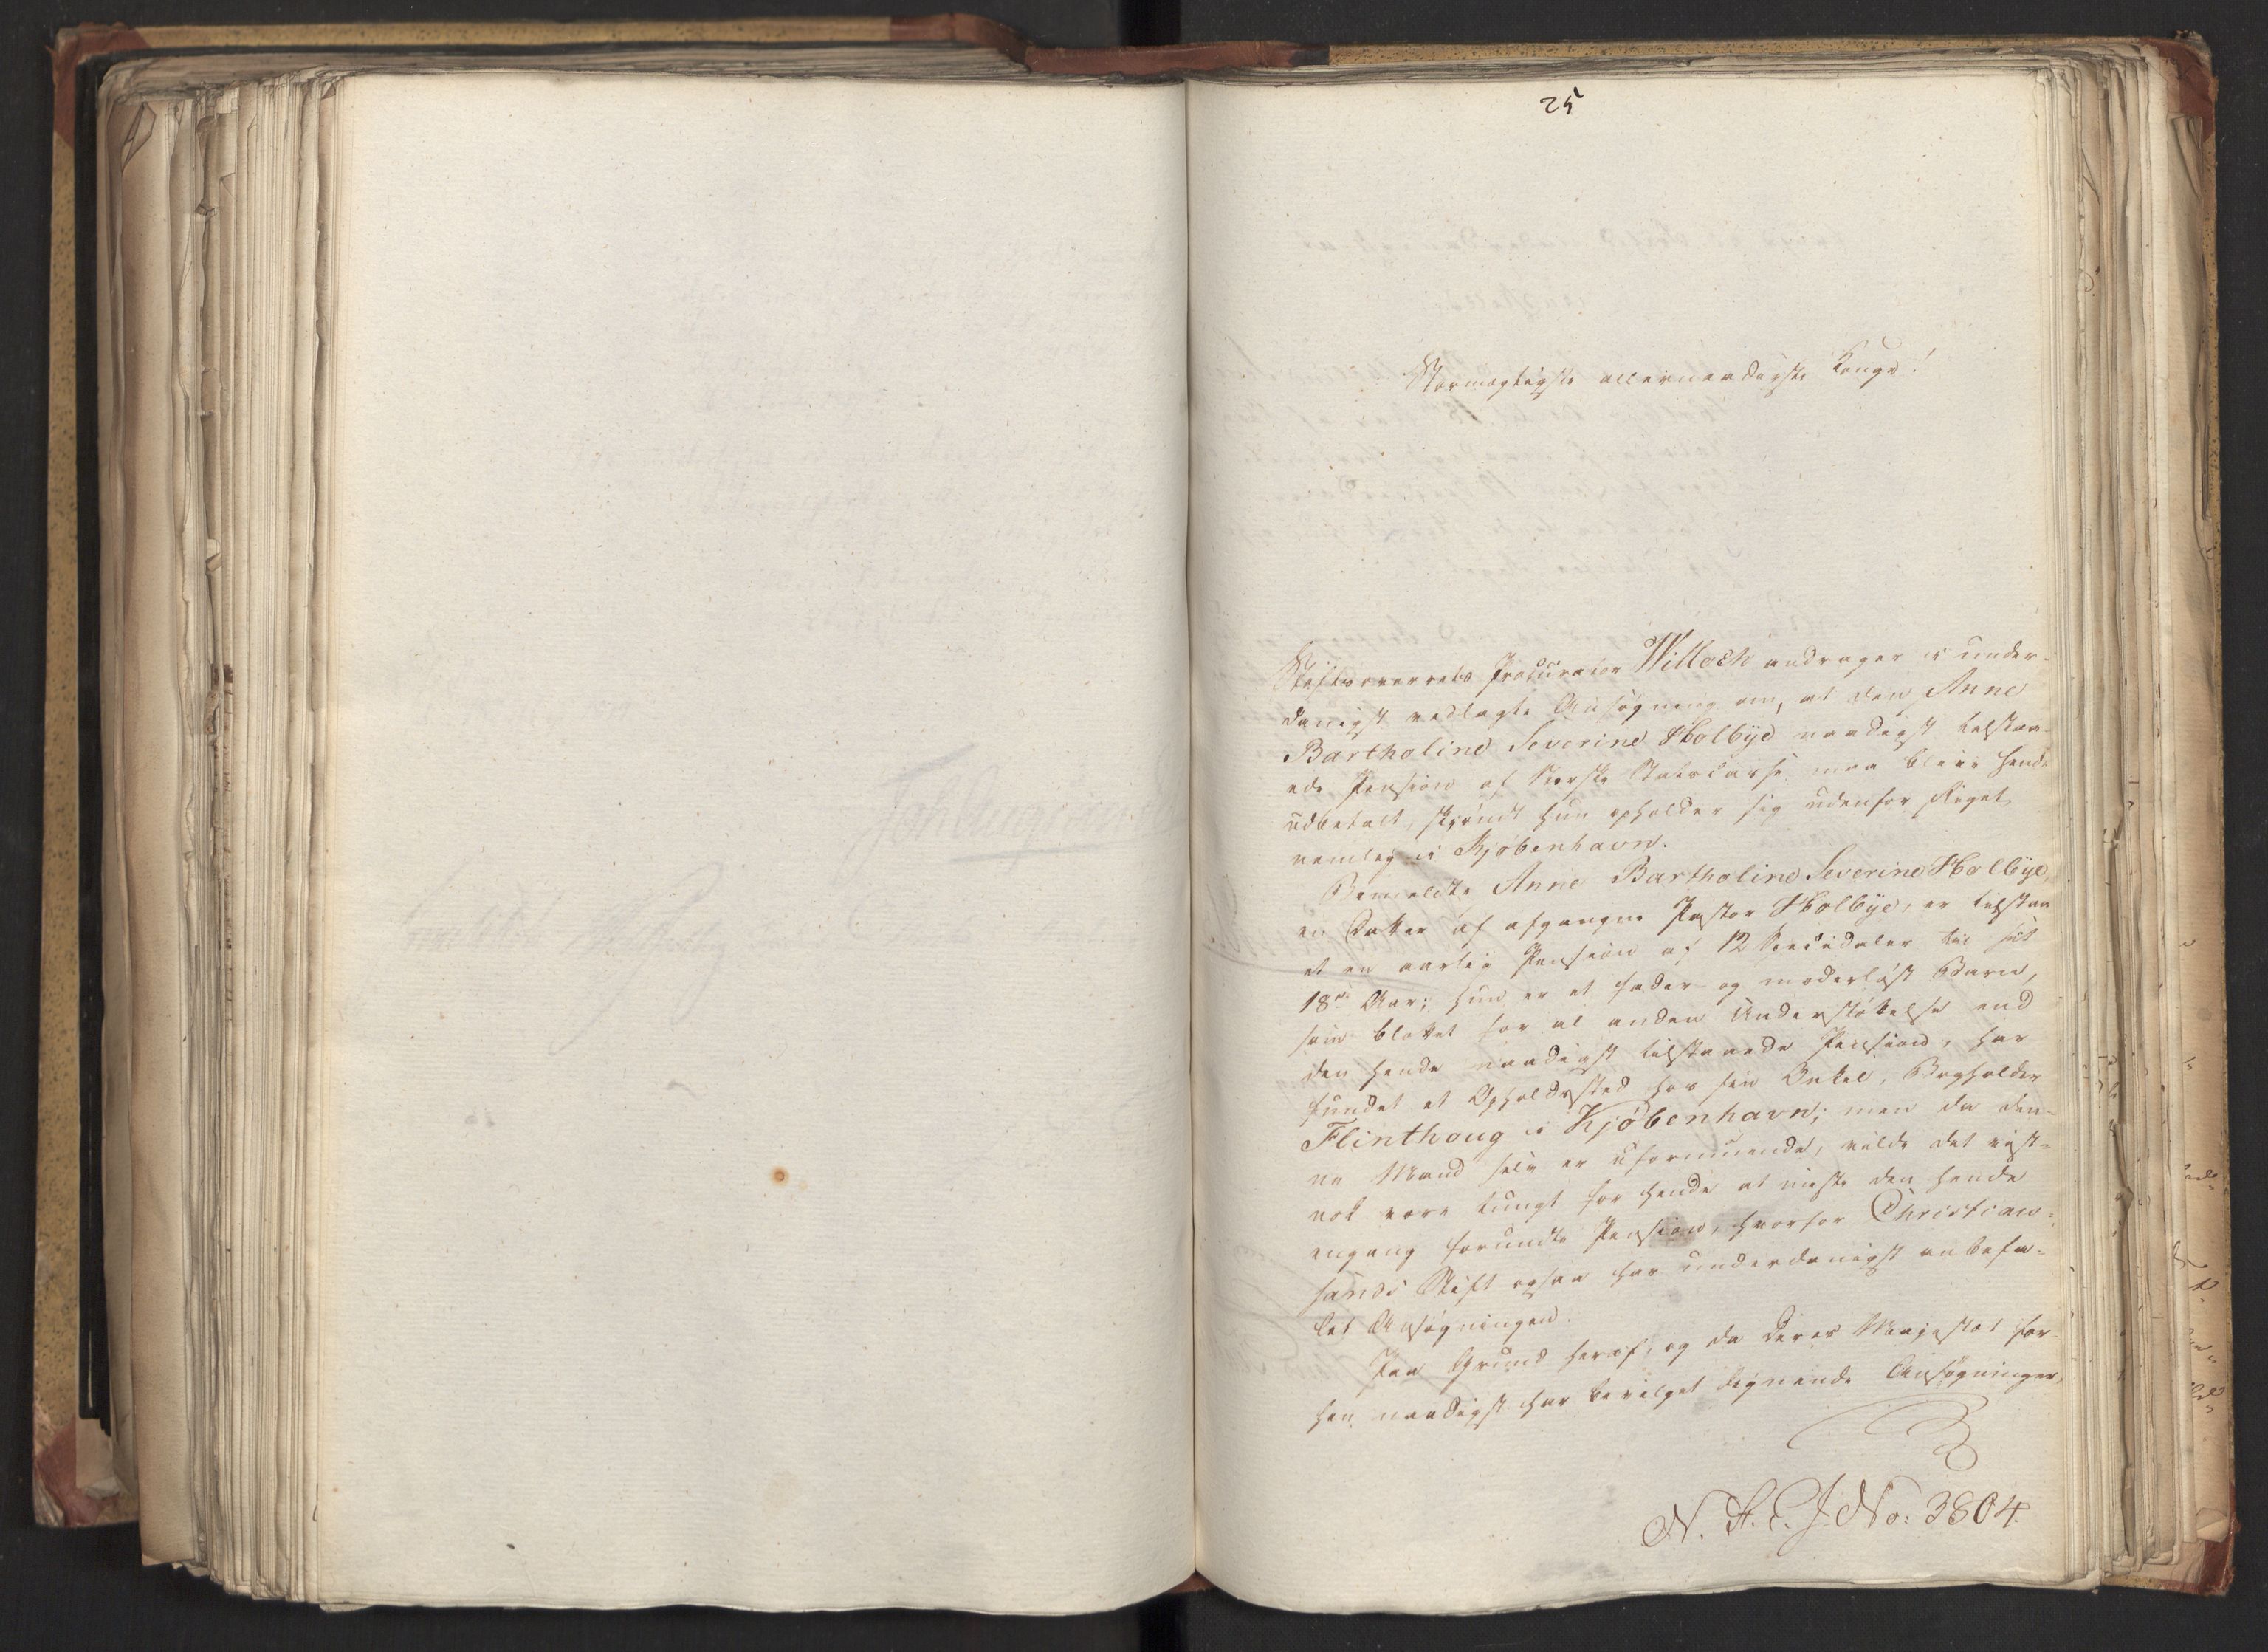 25
Stormægtigste allernaadigste Konge!
Stiftsoverrets Procurator Willoch andrager i under-
danigst vedlagte Ansøgning om, at den Anne
Bartholine Severine Holbye naadigst tilstaa-
ede Pension af Norske Statscasse maa blive hende
udbetalt, skjøndt hun opholder sig udenfor Riget,
nemlig i Kjøbenhavn.
Bemeldte Anne Bartholine Severine Holbye,
en Datter af afgangne Pastor Holbye, er tilstaa-
et en aarlig Pension af 12 Speciedaler til sit
18de Aar; hun er et fader- og moderløst Barn,
som blottet for al anden Understøttelse end
den hende naadigst tilstaaede Pension, har
fundet et Opholdssted hos sin Onkel, Bogholder
Flinthoug i Kjøbenhavn; men da den-
ne Mand selv er uformuende, vilde det vist-
nok være tungt for hende at miste den hende
engang forundte Pension, hvorfor Christian-
sands Stift ogsaa har underdanigst anbefa-
let Ansøgningen.
Paa Grund heraf, og da Deres Majestæt for-
hen naadigst har bevilget lignende Ansøgninger,
N. S. C. J. No: 3804.